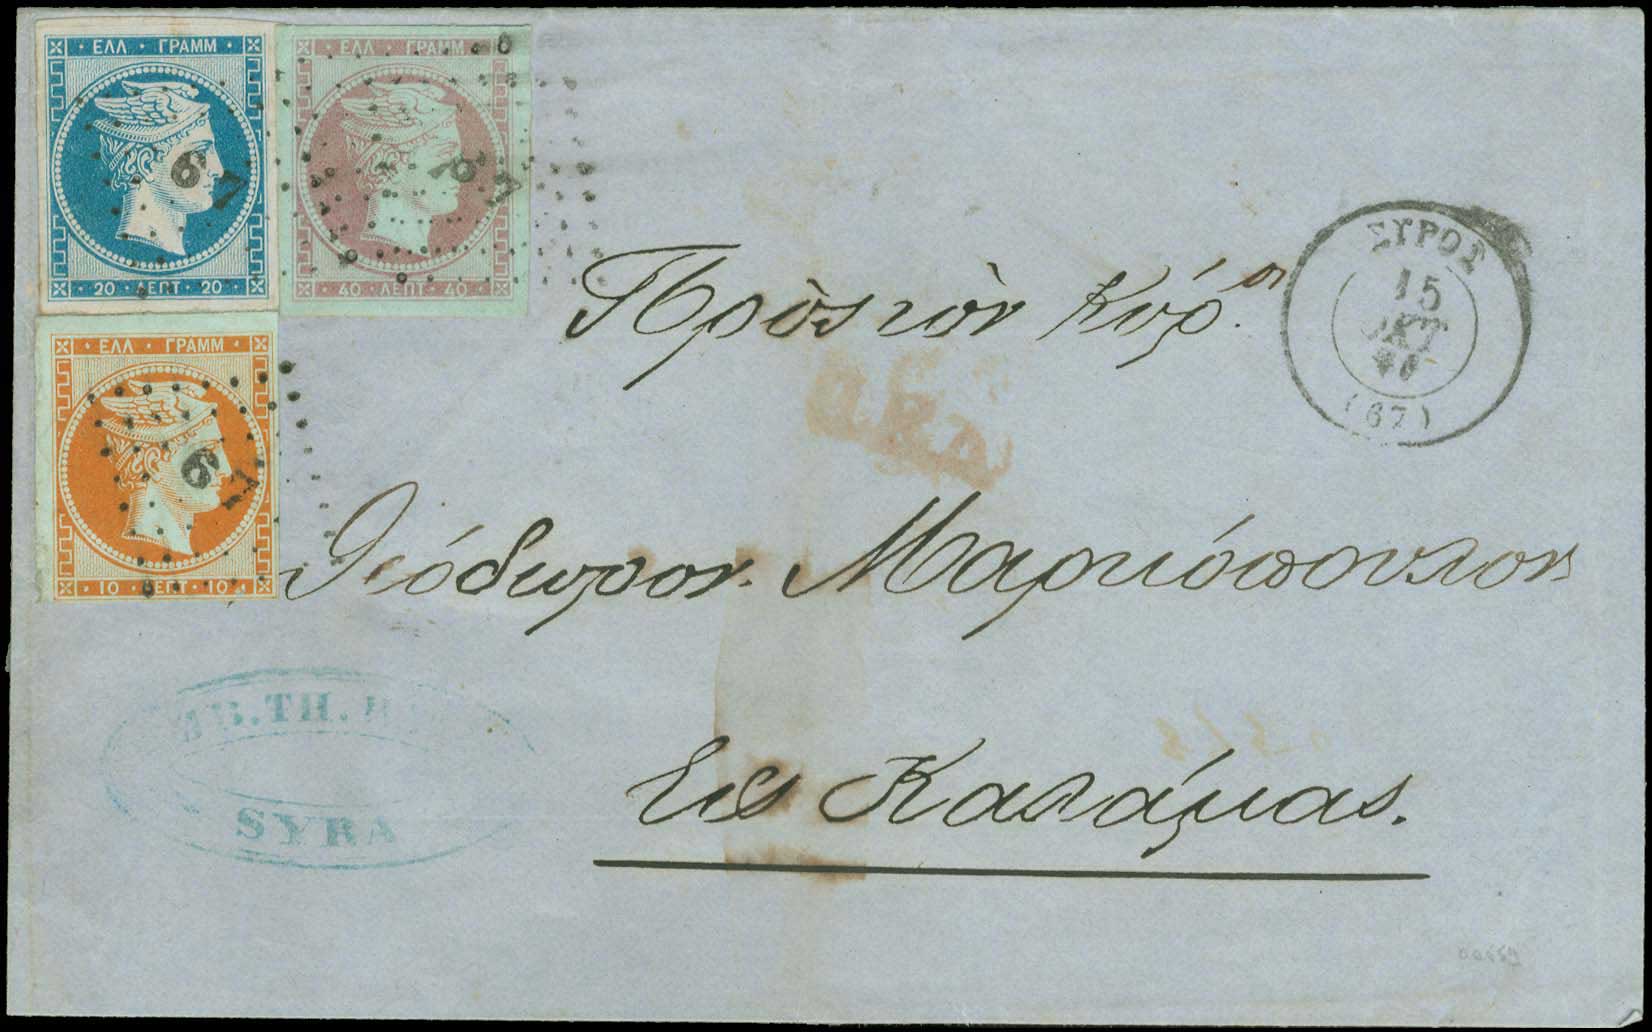 ΕΛΛ · ΓΡΑΜΜ
20 · ΛΕΠΤ · 20
67
ΕΛΛ · ΓΡΑΜΜ
40 · ΛΕΠΤ · 40
67
ΕΛΛ · ΓΡΑΜΜ
10 · ΛΕΠΤ · 10
67
ΣΥΡΟΣ
15
ΟΚΤ
(67)
Πρὸς τὸν Κύρ.ον
Θεόδωρον Μαρκόπουλον
Εἰς Καλάμας.
TH.
SYRA